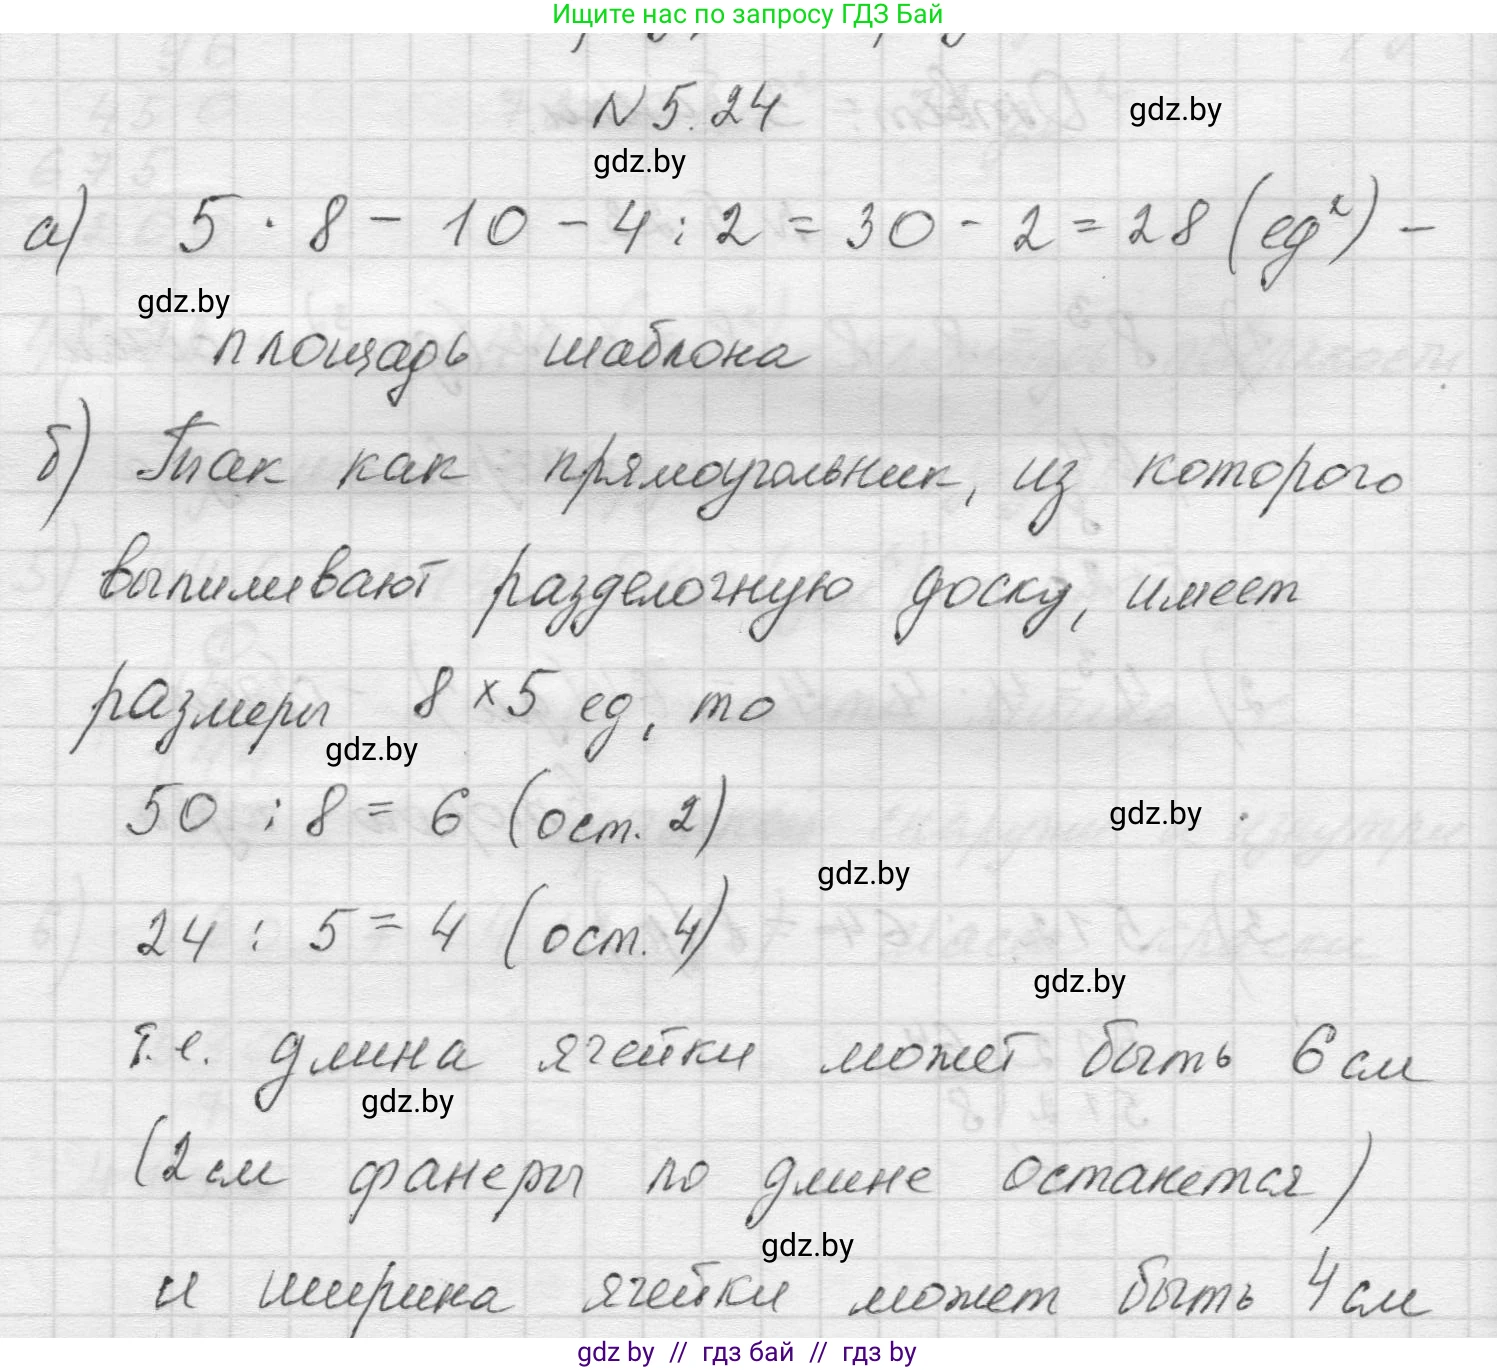 Ищите нас по запросу ГДЗ Бай
N 5.24
gdz.by
gdz.by
а) 5 · 8 - 10 - 4 : 2 = 30 - 2 = 28 (ед²) -
gdz.by
площадь шаблона
б) Так как прямоугольник, из которого
выпиливают разделочную доску, имеет
размеры 8 × 5 ед, то
gdz.by
50 : 8 = 6 (ост. 2)
gdz.by
gdz.by
24 : 5 = 4 (ост. 4)
gdz.by
т.е. длина ячейки может быть 6 см
gdz.by
(2 см фанеры по длине останется)
gdz.by
и ширина ячейки может быть 4 см
gdz by // гдз бай // гдз by